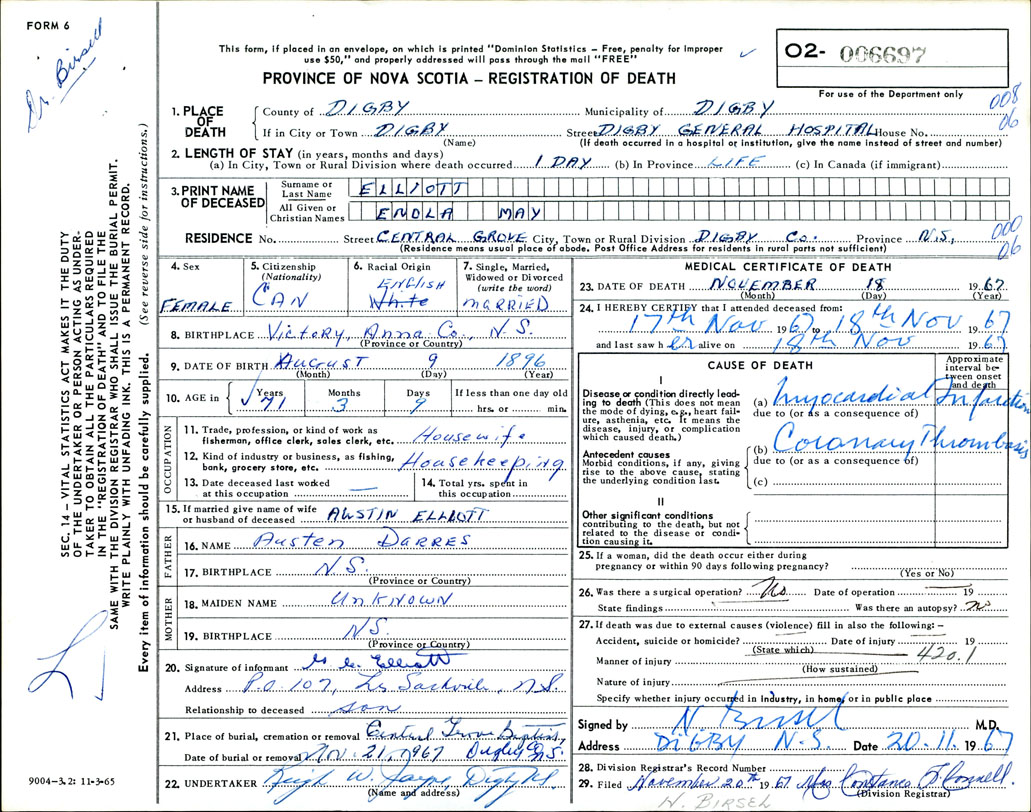 FORM 6
Dr. Birsell
This form, if placed in an envelope, on which is printed "Dominion Statistics – Free, penalty for improper
use $50," and properly addressed will pass through the mail "FREE"
PROVINCE OF NOVA SCOTIA – REGISTRATION OF DEATH
O2- 006697
For use of the Department only
008
06
1. PLACE OF DEATH
County of DIGBY Municipality of DIGBY
If in City or Town DIGBY Street DIGBY GENERAL HOSPITAL House No.
(Name) (If death occurred in a hospital or institution, give the name instead of street and number)
2. LENGTH OF STAY (in years, months and days)
(a) In City, Town or Rural Division where death occurred 1 DAY (b) In Province LIFE (c) In Canada (if immigrant)
3. PRINT NAME OF DECEASED
Surname or Last Name ELLIOTT
All Given or Christian Names ENOLA MAY
RESIDENCE No. Street CENTRAL GROVE City, Town or Rural Division DIGBY Co. Province N.S,
(Residence means usual place of abode. Post Office Address for residents in rural parts not sufficient)
000
06
4. Sex FEMALE
5. Citizenship (Nationality) CAN
6. Racial Origin ENGLISH White
7. Single, Married, Widowed or Divorced (write the word) MARRIED
8. BIRTHPLACE Victory, Anna Co, N.S.
(Province or Country)
9. DATE OF BIRTH August 9 1896
(Month) (Day) (Year)
10. AGE in Years 71 Months 3 Days 9 If less than one day old hrs. or min.
OCCUPATION
11. Trade, profession, or kind of work as fisherman, office clerk, sales clerk, etc. Housewife
12. Kind of industry or business, as fishing, bank, grocery store, etc. Housekeeping
13. Date deceased last worked at this occupation
14. Total yrs. spent in this occupation
15. If married give name of wife or husband of deceased AUSTIN ELLIOTT
FATHER
16. NAME Austen DARRES
17. BIRTHPLACE N.S.
(Province or Country)
MOTHER
18. MAIDEN NAME UNKNOWN
19. BIRTHPLACE N.S.
(Province or Country)
20. Signature of informant Elliott
Address P.O 107, Lr Sackville, N.S.
Relationship to deceased son
21. Place of burial, cremation or removal Central Grove Baptist
Date of burial or removal Nov. 21, 1967 Digby Co N.S.
22. UNDERTAKER W. Digby
(Name and address)
MEDICAL CERTIFICATE OF DEATH
23. DATE OF DEATH NOVEMBER 18 1967
(Month) (Day) (Year)
24. I HEREBY CERTIFY that I attended deceased from:
17th Nov 1967 to 18th Nov 1967
and last saw her alive on 18th Nov 1967
CAUSE OF DEATH
Approximate interval between onset and death
I
Disease or condition directly leading to death (This does not mean the mode of dying, e.g., heart failure, asthenia, etc. It means the disease, injury, or complication which caused death.)
(a) Myocardial Infarction
due to (or as a consequence of)
Antecedent causes
Morbid conditions, if any, giving rise to the above cause, stating the underlying condition last.
(b) Coronary Thrombosis
due to (or as a consequence of)
(c)
II
Other significant conditions
contributing to the death, but not related to the disease or condition causing it.
25. If a woman, did the death occur either during
pregnancy or within 90 days following pregnancy?
(Yes or No)
26. Was there a surgical operation? No Date of operation 19
State findings Was there an autopsy? No
27. If death was due to external causes (violence) fill in also the following: –
Accident, suicide or homicide? Date of injury 19
(State which)
420.1
Manner of injury
(How sustained)
Nature of injury
Specify whether injury occurred in industry, in home, or in public place
Signed by N. Birsel M.D.
Address DIGBY N.S. Date 20.11.1967
28. Division Registrar's Record Number
29. Filed November 20th 1967 Mrs Constance
(Division Registrar)
N. BIRSEL
SEC. 14 – VITAL STATISTICS ACT MAKES IT THE DUTY
OF THE UNDERTAKER OR PERSON ACTING AS UNDER-
TAKER TO OBTAIN ALL THE PARTICULARS REQUIRED
IN THE "REGISTRATION OF DEATH" AND TO FILE THE
SAME WITH THE DIVISION REGISTRAR WHO SHALL ISSUE THE BURIAL PERMIT.
WRITE PLAINLY WITH UNFADING INK. THIS IS A PERMANENT RECORD.
Every item of information should be carefully supplied. (See reverse side for instructions.)
9004-3.2: 11-3-65